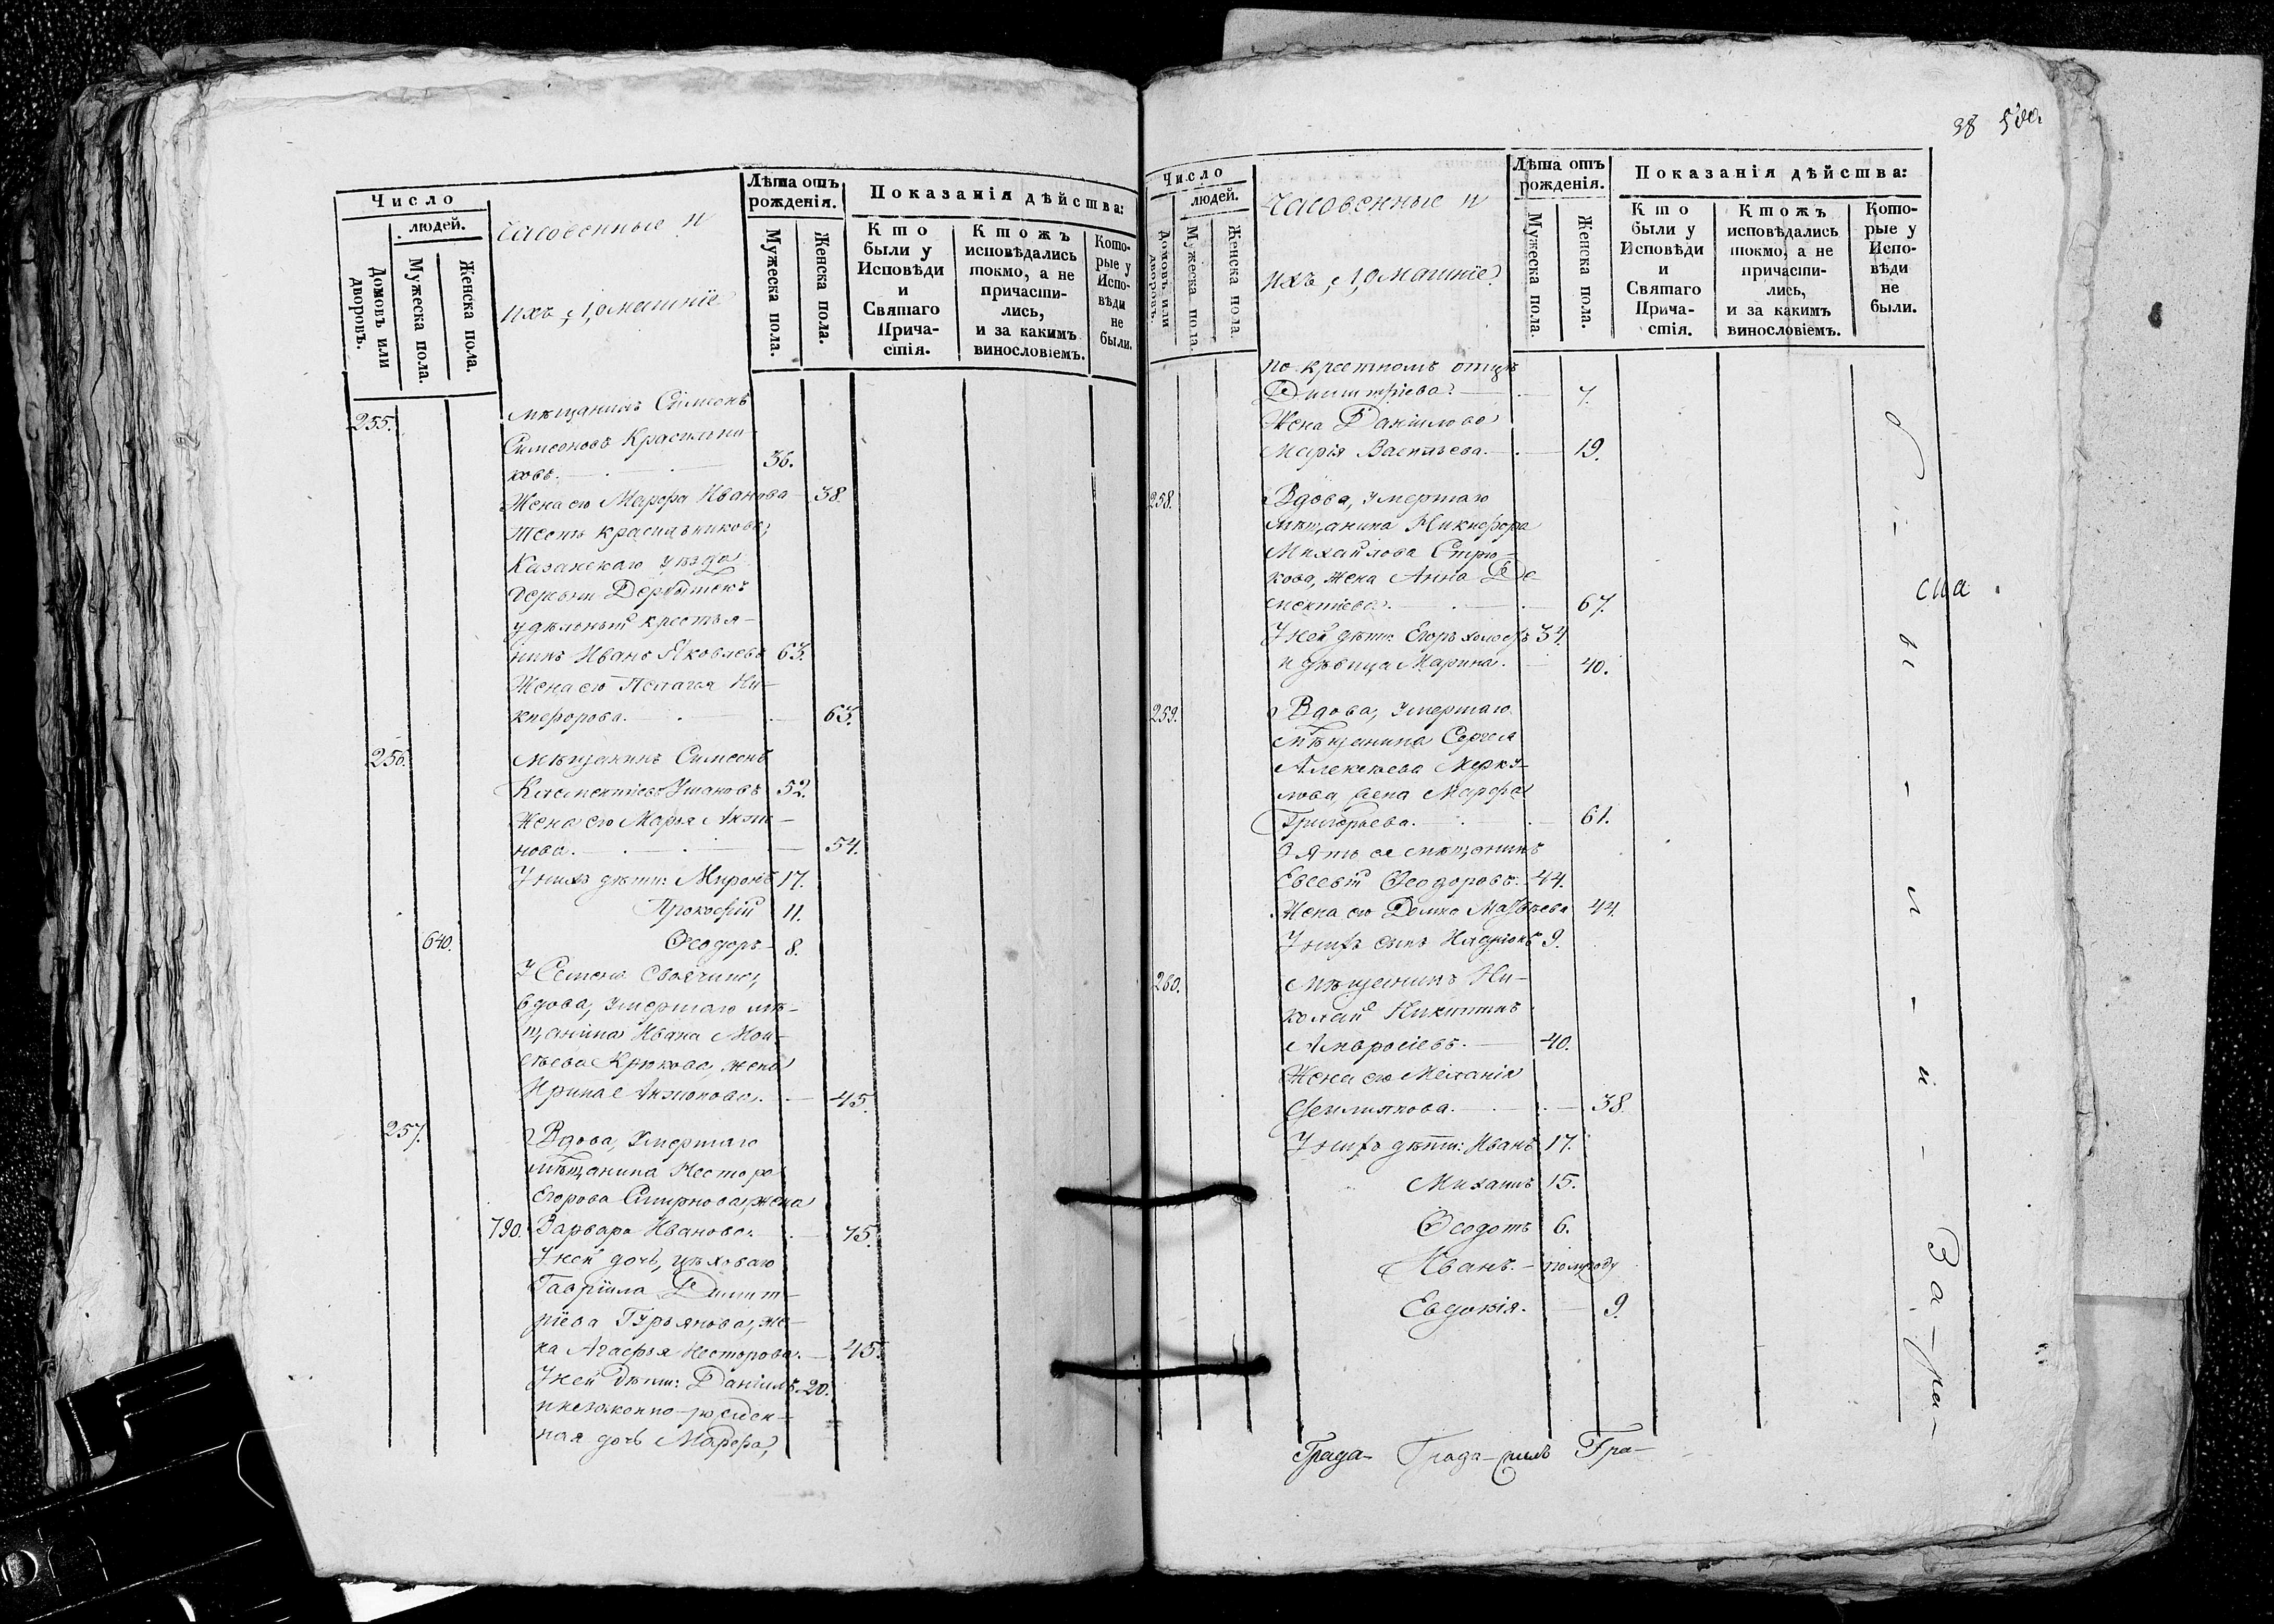 Число
людей.
Домовъ или дворовъ.
Мужеска пола.
Женска пола.
Часовенные и
ихъ домашніе
Лѣта отъ рожденія.
Мужеска пола.
Женска пола.
Показанія дѣйства:
Кто были у Исповѣди и Святаго Причастія.
Ктожъ исповѣдались токмо, а не причастились, и за какимъ винословіемъ.
Которые у Исповѣди не были.
255. мѣщанинъ Симеонъ
Симеоновъ Красильни-
ковъ. 36.
Жена его Марфа Иванова 38.
тесть красильникова,
Казанскаго уѣзда
деревни Дербышекъ
удѣльный крестья-
нинъ Иванъ Яковлевъ 63.
Жена его Пелагея Ни-
кифорова. 63.
256. мѣщанинъ Симеонъ
Климентьевъ Ушаковъ 52.
Жена его Марья Акимо-
нова. 54.
У нихъ дѣти: Миронъ 17.
Прокофій 11.
640. Ѳеодоръ 8.
У Семена своячина,
вдова, умершаго мѣ-
щанина Ивана Мои-
сѣева Крюкова, жена
Ирина 45.
257. Вдова, умершаго
мѣщанина Нестора
Егорова Смирнова, жена
790. Варвара Иванова. 75.
У ней дочь, цѣховаго
Гавріила Димит-
ріева Гурьянова, же-
на Агафья Несторова. 45.
У ней дѣти: Даніилъ 20.
и незаконно-рожден-
ная дочь Марфа,
38
Число
людей.
Домовъ или дворовъ.
Мужеска пола.
Женска пола.
Часовенные и
ихъ домашніе
Лѣта отъ рожденія.
Мужеска пола.
Женска пола.
Показанія дѣйства:
Кто были у Исповѣди и Святаго Причастія.
Ктожъ исповѣдались токмо, а не причастились, и за какимъ винословіемъ.
Которые у Исповѣди не были.
по крестномъ отцѣ
Димитріева. 7.
Жена Данилова
Марія Васильева. 19.
258. Вдова, умершаго
мѣщанина Никифора
Михайлова Стрю-
кова, жена Анна Де-
ментіева. 67.
У ней дѣти: Егоръ холостъ 34.
и дѣвица Марина. 40.
259. Вдова, умершаго
мѣщанина Сергея
Алексѣева Мерку-
лова, жена Марфа
Григорьева. 61.
Зять ея мѣщанинъ
Евсевій Ѳеодоровъ. 44.
Жена его Домна Матвѣева 44.
У нихъ сынъ Иларіонъ 9.
260. мѣщанинъ Ни-
колай Никитинъ
Амвросіевъ. 40.
Жена его Меланія
Филипова. 38.
У нихъ дѣти: Иванъ 17.
Михаилъ 15.
Ѳеодотъ 6.
Иванъ. полугоду
Евдокія. 9.
За-ра-
Града- Града- Гра-